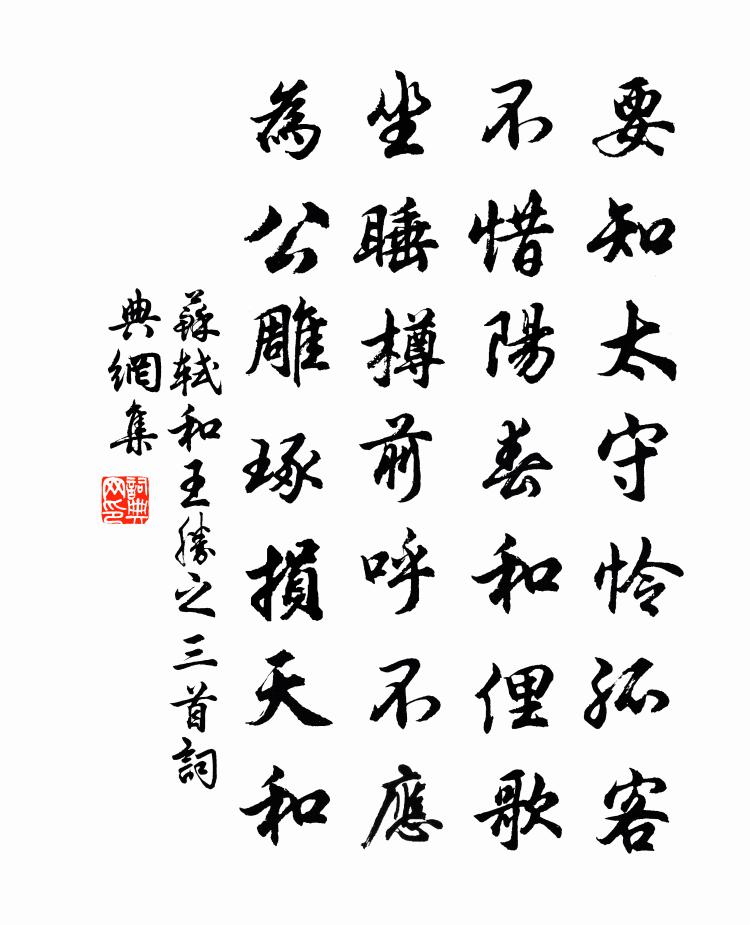 要知太守怜孤客
不惜陽春和俚歌
坐睡樽前呼不應
為公雕琢損天和
蘇軾和王勝之三首詞
典網集
詞典網印